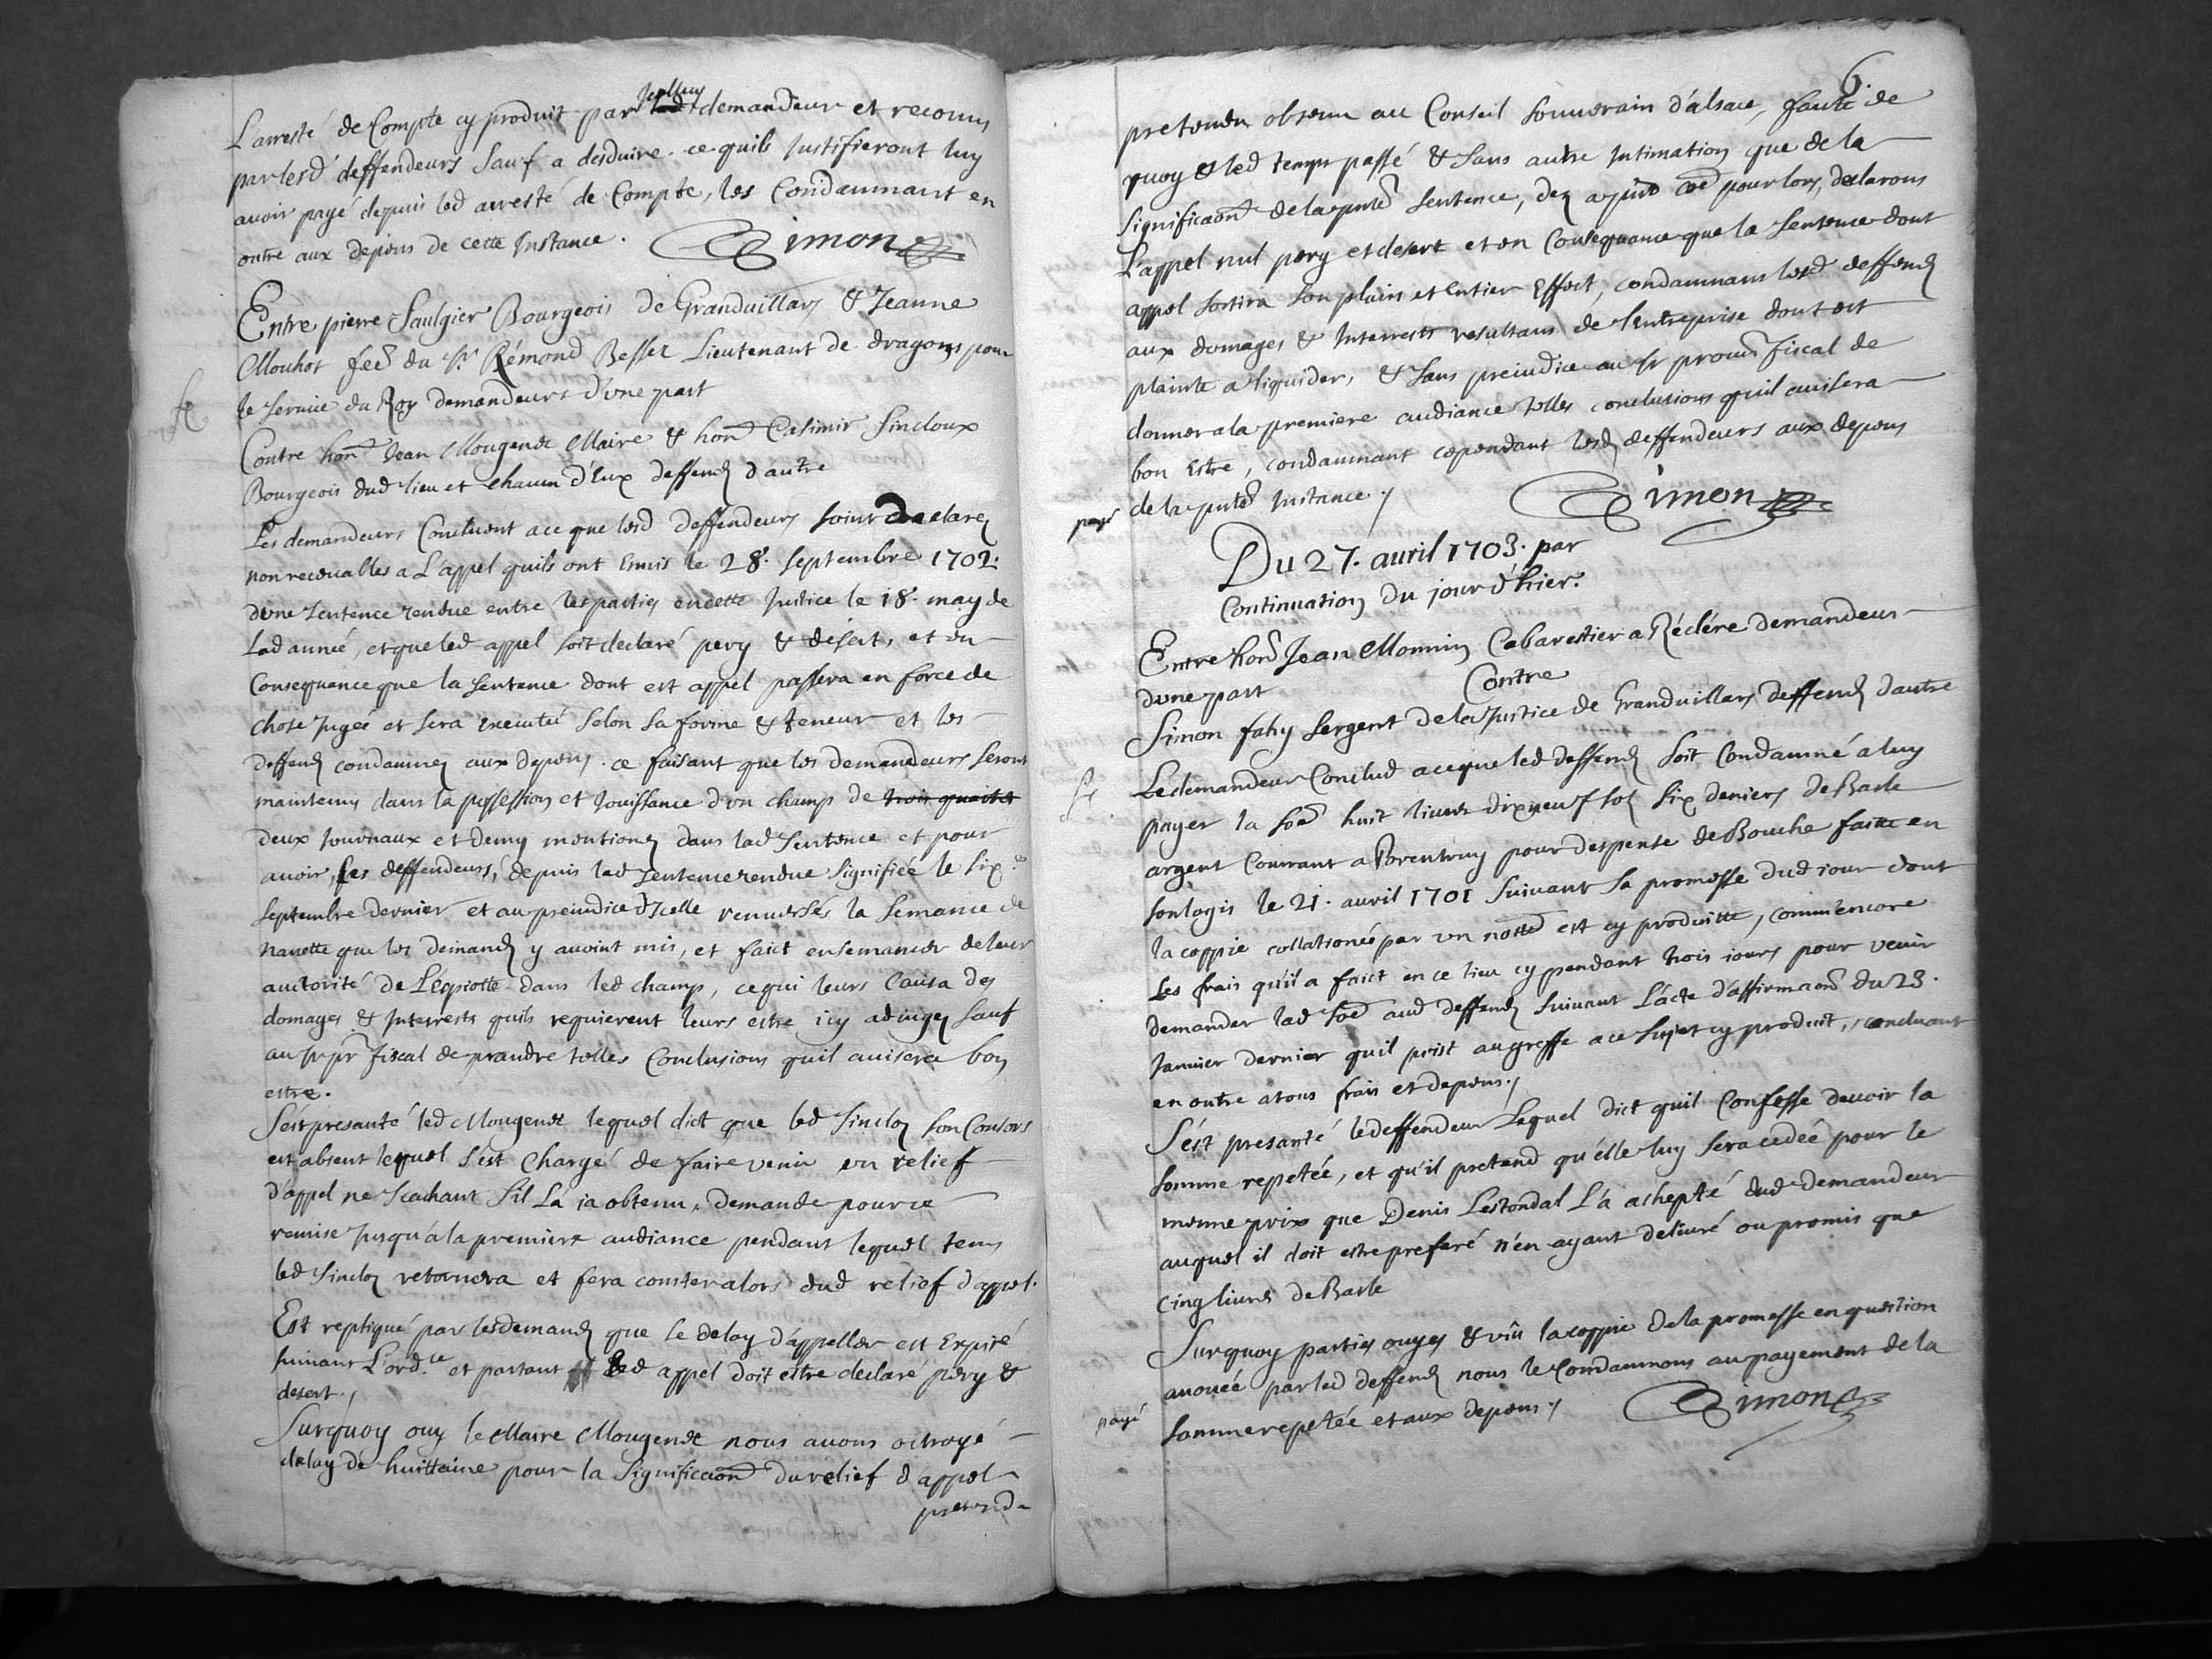 L'arresté de Compte cy produit par Jcelluy demandeur et reconnu
par lesd deffendeurs sauf a desduire ce quils Justifieront luy
avoir payé depuis led arresté de Compte, les Condamnant en
outre aux depens de cette Instance. Simon
Entre pierre Saulgier Bourgeois de Granduillars & Jeanne
Mouhot fee du Sr. Rémond Besser Lieutenant de dragons pour
le seruice du Roy demandeurs d'une part
Contre hon Jean Mougenot Maire & hon Casimir Sincloux
Bourgeois dud lieu et chacun d'Eux deffend d'autre
Les demandeurs Concluent ace que lesd deffendeurs soint declarez
non receuables a L'appel quils ont Emis le 28. septembre 1702.
dune sentence rendue entre les parties en cette Justice le 18. may de
lad année, et que led appel soit declaré pery & désert, et en
Consequance que la sentence dont est appel passera en force de
chose Jugée et sera executé selon sa forme & teneur et les
deffend condamnez aux depens. ce faisant que les demandeurs seront
maintenus dans la possession et Jouissance d'un champ de trois quarts
deux Journaux et demy mentionez dans lad sentence et pour
auoir, les deffendeurs, depuis lad sentence rendue signifiée le six.e
septembre dernier et au preiudice d'Icelle renuersés la semance de
nauette que les demand y auoint mis, et faict ensemancer de leur
auctorité de L'Epiotte dans led champ, ce qui leurs causa des
domages & Interrests quils requierent leurs estre icy adiugez sauf
au Sr pr fiscal de prandre telles Conclusions quil auisera bon
estre.
S'est presanté led Mougenot lequel dict que led Sinclox son Consors
est absent lequel s'est chargé de faire venir un relief
d'appel ne scachant s'il L'a ja obtenu, demande pource
remise Jusqu'a la premiere audiance pendant lequel tems
led Sinclox retornera et fera conster alors dud relief d'appel.
Est repliqué par les demand que le delay d'appeller est Expiré
suiuant L'ord.ce et partant led appel doit estre declaré pery &
desert./
Surquoy ouy le Maire Mougenot nous auons octroyé
delay de huittaine pour la significaon du relief d'appel
pretendu
6.
pretendu obtenu au Conseil souuerain d'alsace, faute de
quoy & led temps passé & sans autre Intimation que de la
significaon de la pnte sentence, dez a pnt pour lors, declarons
L'appel nul pery et desert et en Consequance que la sentence dont
appel sortira son plain et entier Effect, condamnans lesd deffend
aux domages & Interrests resultans de l'entreprise dont est
plainte a liquider, & sans preiudice au Sr procur fiscal de
donner a la premiere audiance telles conclusions quil auisera
bon estre, condamnant cependant lesd deffendeurs aux depens
payé de la pnte Instance./ Simon
Du 27. auril 1703. par
Continuation du jour d'hier.
Entre hon Jean Monnin Cabarestier a Réclére demandeur
d'une part Contre
Simon fahy sergent de la Justice de Granduillars deffend d'autre
Le demandeur Conclud aceque led deffend soit Condamné a luy
payer la soe huit liures dixneuf sol six deniers de Basle
argent Courrant a Porentruy pour despense de Bouche faitte en
son logis le 21. auril 1701 suiuant sa promesse dud iour dont
la coppie collationée par un notte est cy produitte, comm'encore
Les frais qu'il a faict en ce lieu cy pendant trois iours pour venir
demander lad soe aud deffend suiuant L'acte d'affirmaon du 23.
Januier dernier quil prist au greffe a ce sujet cy produit, concluant
en outre a tous frais et depens./
S'est presanté le deffendeur Lequel dict quil Confesse deuoir la
somme repetée, et qu'il pretend qu'elle luy sera cedée pour le
meme prix que Denis Lestondal L'a achepté dud demandeur
auquel il doit estre preferé n'en ayant deliuré ou promis que
cinq liures de Basle
Surquoy parties ouyes & vûu la coppie de la promesse en question
auouée par led deffend nous le Condamnons au payement de la
payé somme repetée et aux depens./ Simon